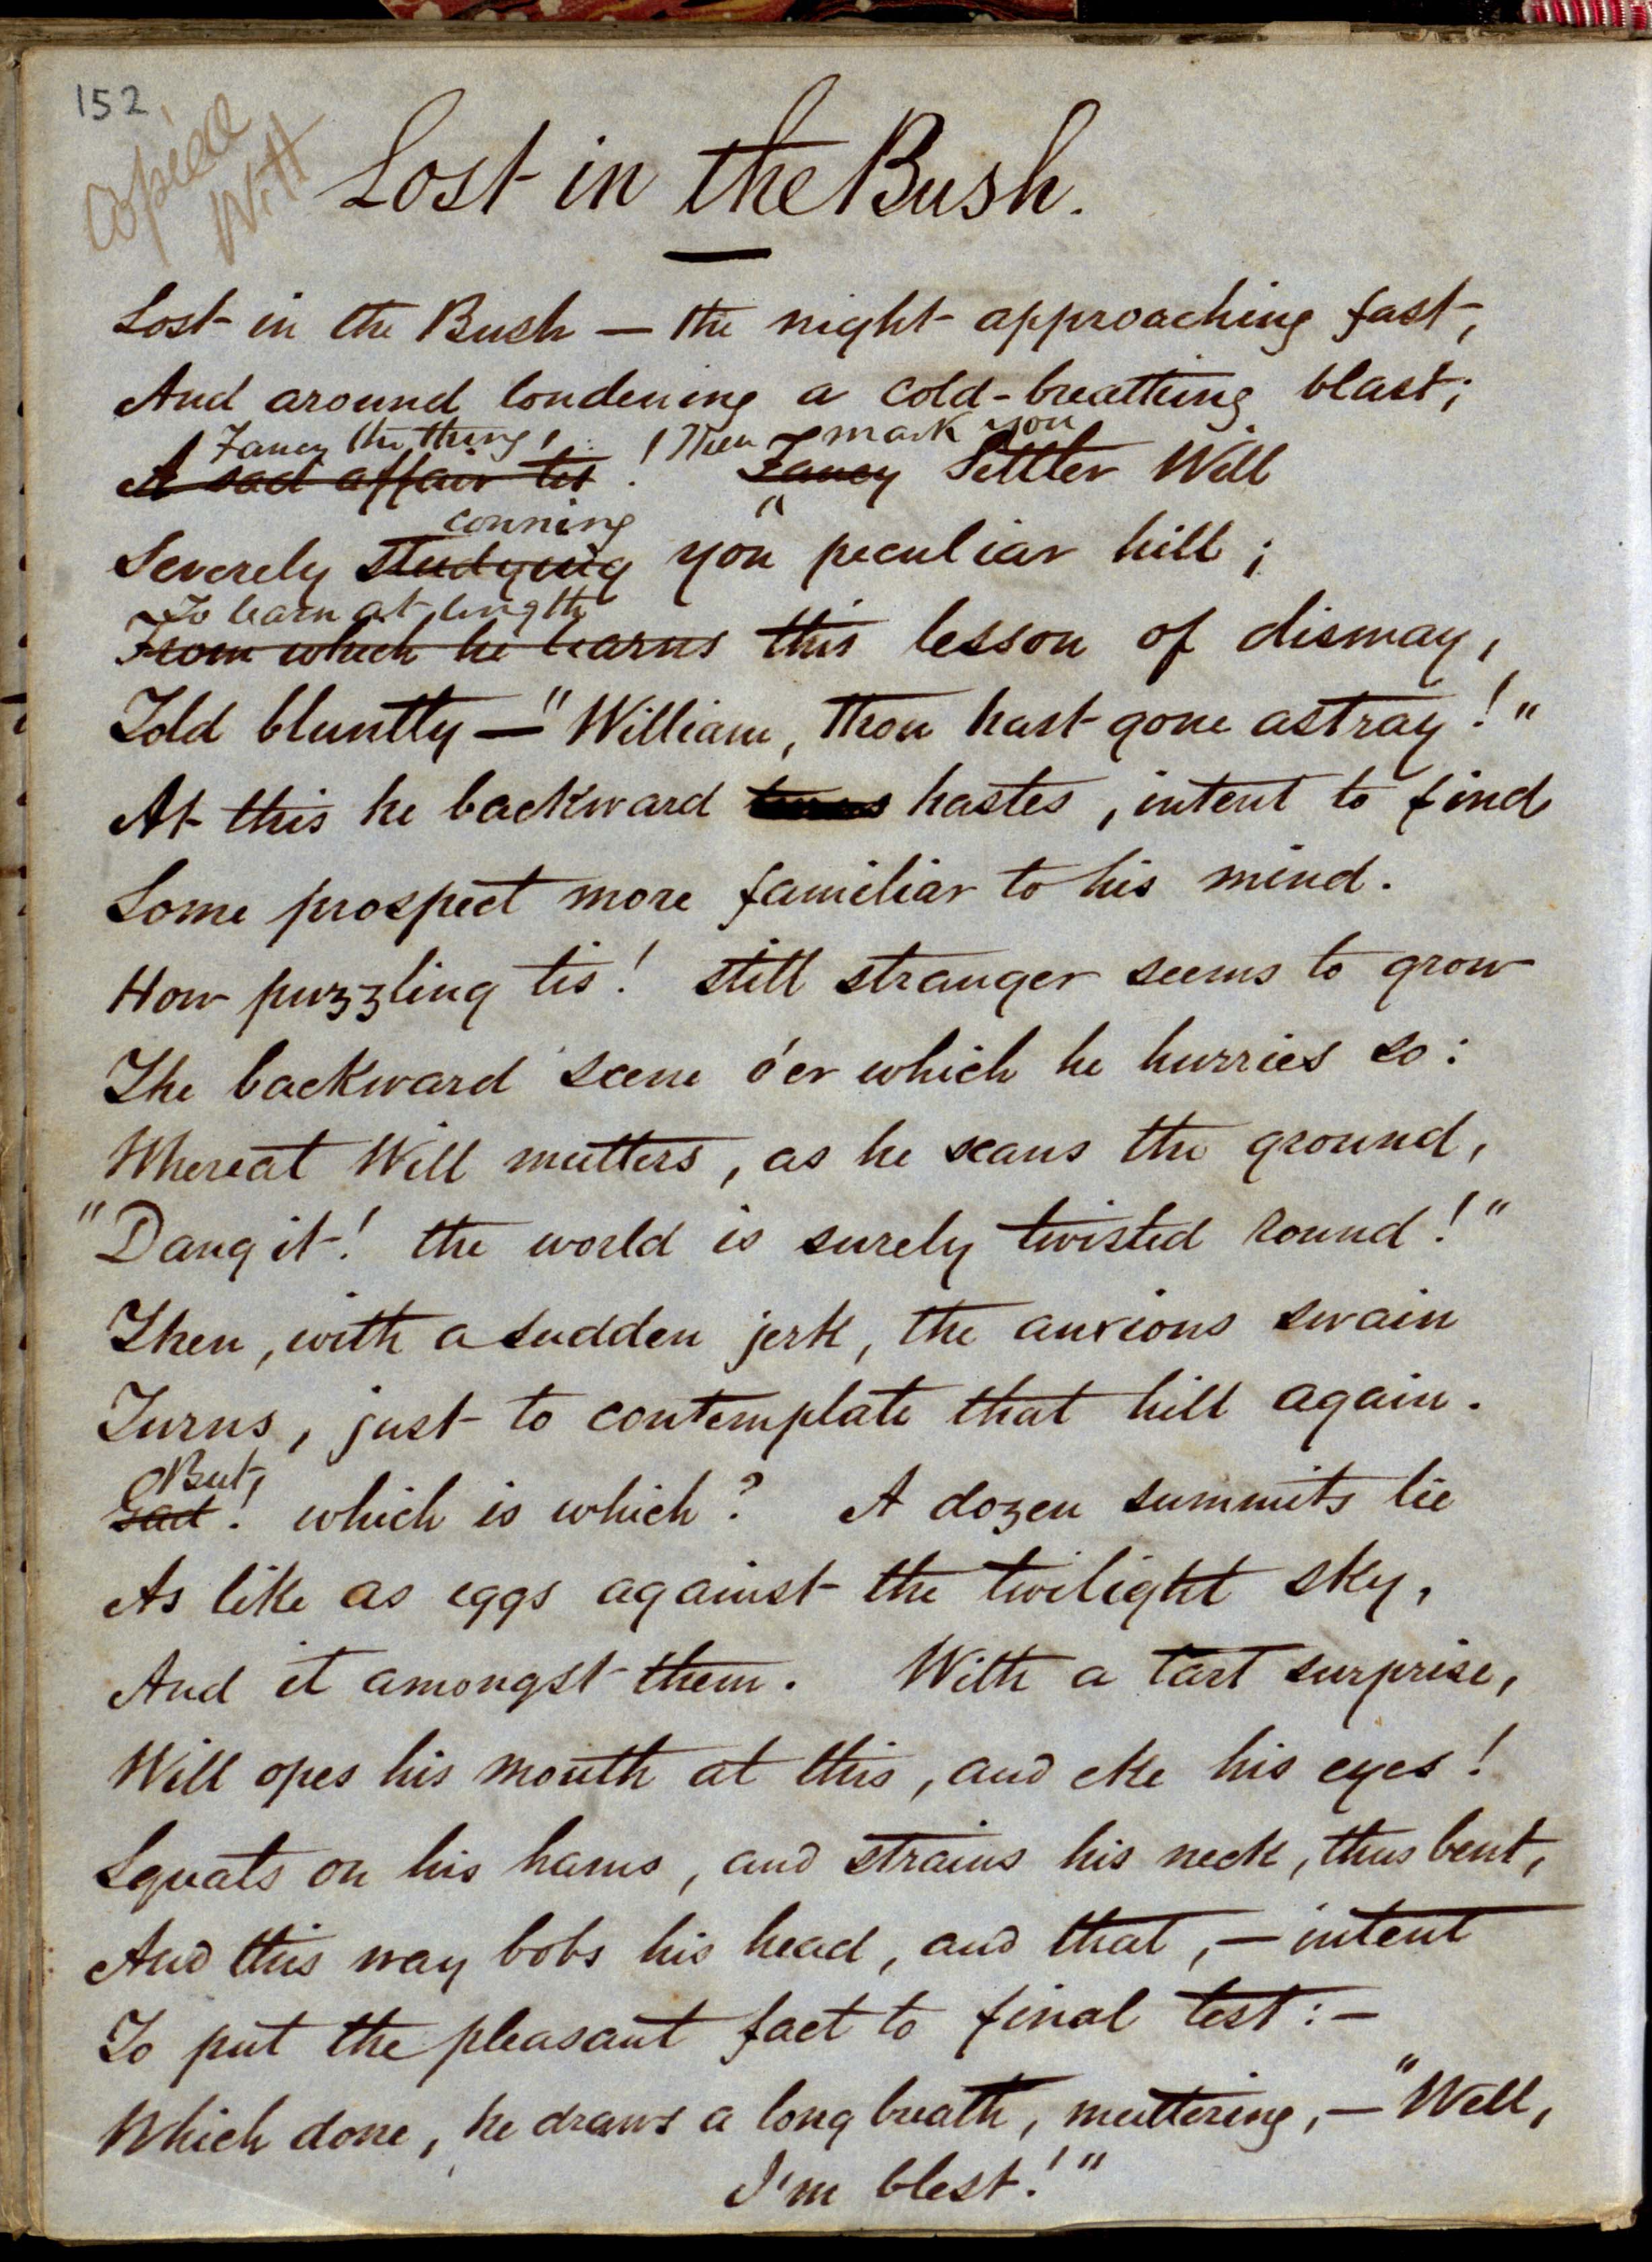 152
Copied
Lost in the Bush.
Lost in the Bush — the night approaching fast,
And around loudening a cold-breathing blast;
Fancy the thing, ! Then mark you
A sad affair tis ! Fancy Settler Will
conning
Severely studying yon peculiar hill;
To learn at length
From which he learns this lesson of dismay,
Told bluntly — "William, thou hast gone astray!"
At this he backward turns hastes, intent to find
Some prospect more familiar to his mind.
How puzzling tis! still stranger seems to grow
The backward scene o'er which he hurries so:
Whereat Will mutters, as he scans the ground,
"Dang it! the world is surely twisted round!"
Then, with a sudden jerk, the anxious swain
Turns, just to contemplate that hill again.
But,
Sad! which is which? A dozen summits lie
As like as eggs against the twilight sky,
And it amongst them. With a tart surprise,
Will opes his mouth at this, and eke his eyes!
Squats on his hams, and strains his neck, thus bent,
And this way bobs his head, and that, — intent
To put the pleasant fact to final test: —
Which done, he draws a long breath, muttering, — "Well,
I'm blest!"